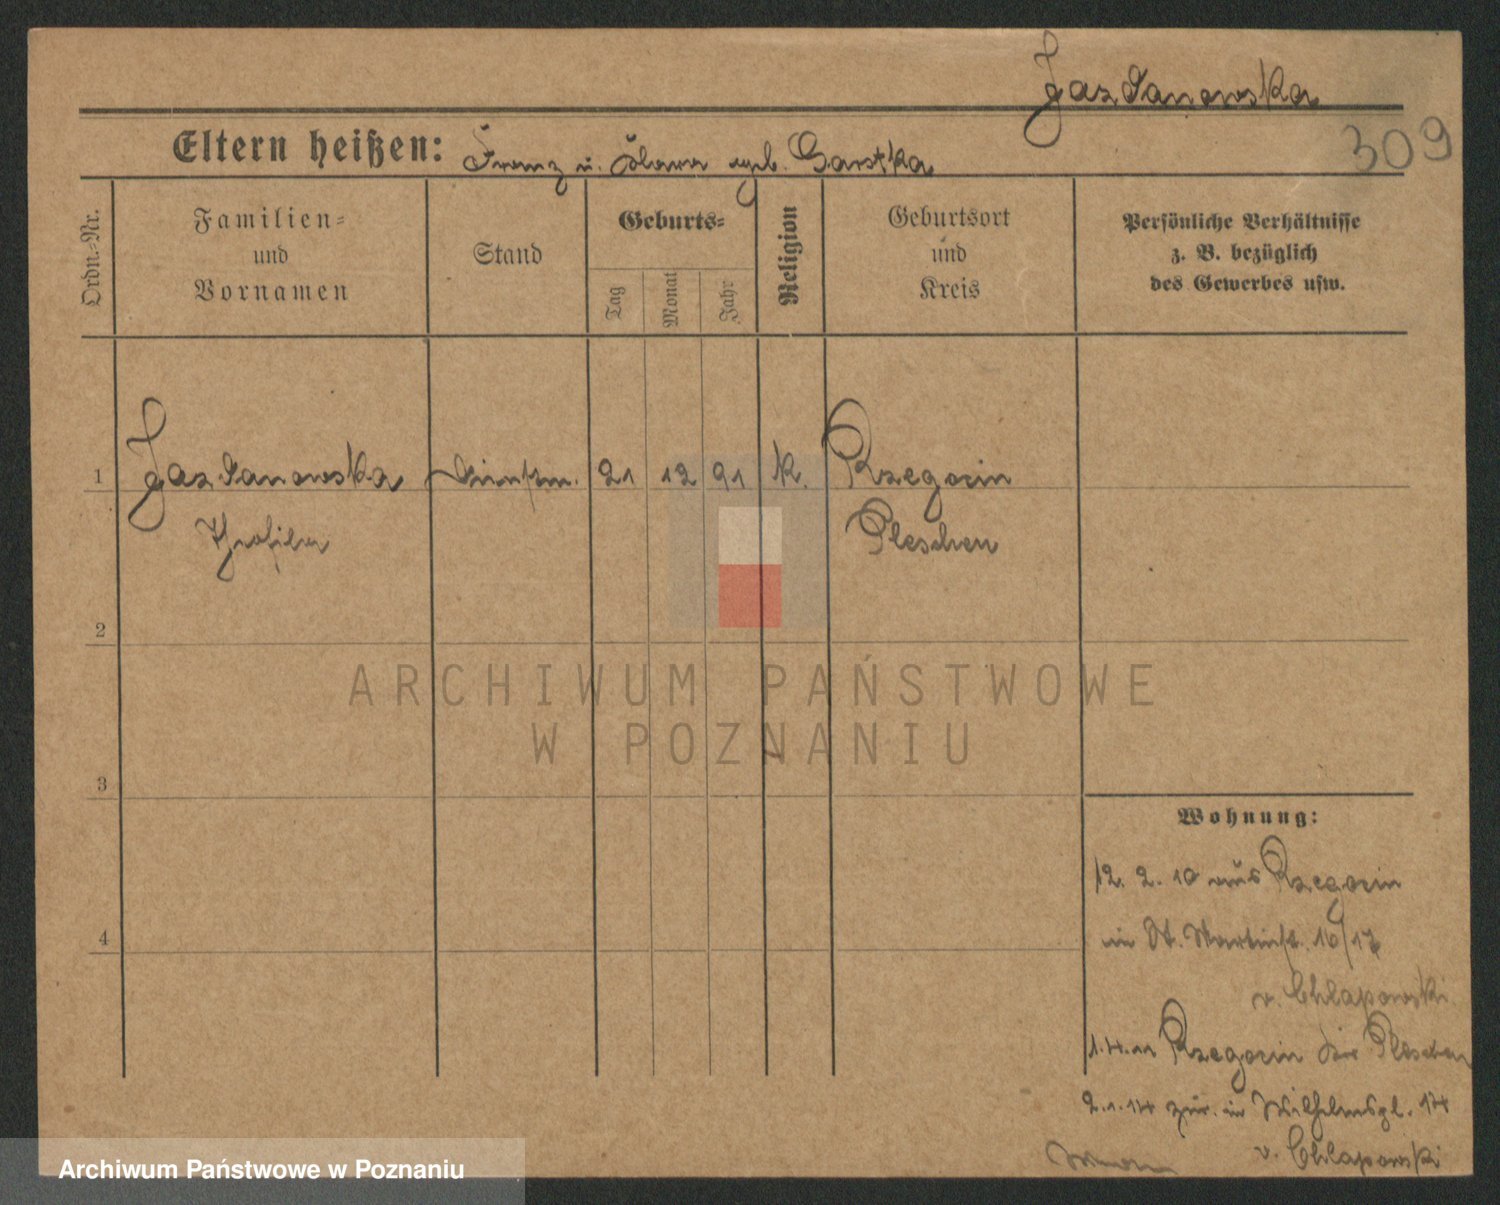 Jazdanowska
309
Eltern heißen: Franz u. geb. Garstka
Ordn.-Nr.
Familien- und Vornamen
Stand
Geburts-
Tag
Monat
Jahr
Religion
Geburtsort und Kreis
Persönliche Verhältnisse
z. B. bezüglich
des Gewerbes usw.
1 Jazdanowska 21 12 91 k. Rzegocin
Pleschen
2
3
4
ARCHIWUM PAŃSTWOWE
W POZNANIU
Wohnung:
12. 2. 10 aus Rzegocin
in St. Martinstr. 16/17
v. Chlapowski
1.4.11 Rzegocin Pleschen
2.1.14 zur. in Wilhelmspl. 14
v. Chlapowski
Archiwum Państwowe w Poznaniu